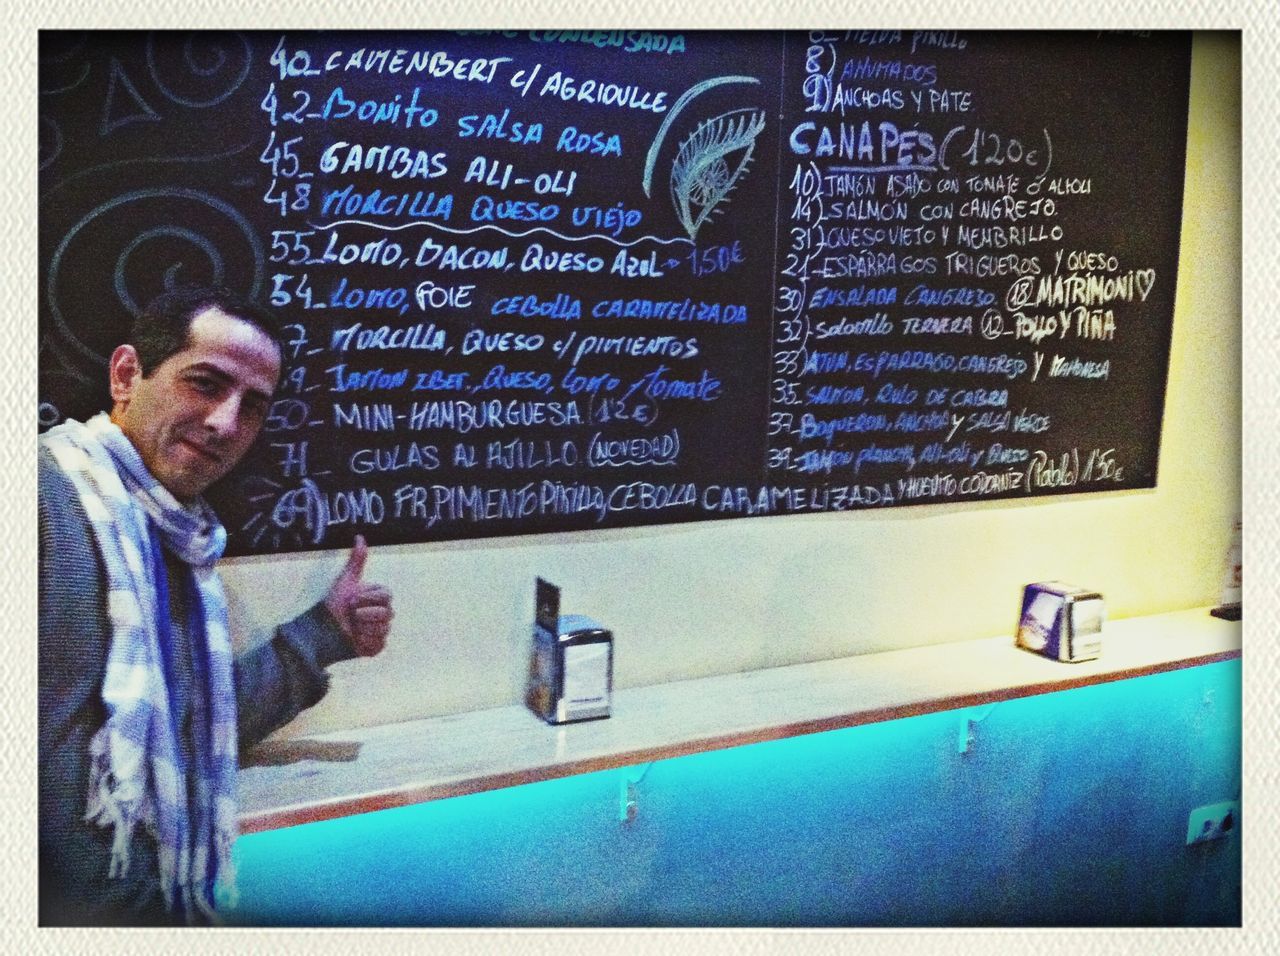 CONDENSADA
40_ CAMENBERT c/ AGRIDULCE
42_ BONITO SALSA ROSA
45_ GAMBAS ALI-OLI
48 MORCILLA QUESO VIEJO
55_ LOMO, BACON, QUESO AZUL 1,50€
54_ LOMO, FOIE CEBOLLA CARAMELIZADA
7_ MORCILLA, QUESO c/ PIMIENTOS
9_ JAMON IBER., QUESO, LOMO, tomate
50_ MINI-HAMBURGUESA (1'2€)
71_ GULAS AL AJILLO (NOVEDAD)
69) LOMO FR, PIMIENTO PIKILLO, CEBOLLA CARAMELIZADA Y HUEVITO CODORNIZ (Pablo) 1'50€
8) AHUMADOS
9) ANCHOAS Y PATE
CANAPÉS (1'20€)
10) JAMÓN ASADO CON TOMATE Ó ALIOLI
14)_ SALMÓN CON CANGREJO
31) QUESO VIEJO Y MEMBRILLO
21_ ESPÁRRAGOS TRIGUEROS Y QUESO
30) ENSALADA CANGREJO (18_ MATRIMONI♡
32) SOLOMILLO TERNERA (12_ POLLO Y PIÑA
33) ATUN, ESPARRAGO, CANGREJO Y MAHONESA
35_ SALMON, RULO DE CABRA
37_ BOQUERON, ANCHOA Y SALSA VERDE
39_ JAMÓN plancha, ALI-OLI Y QUESO